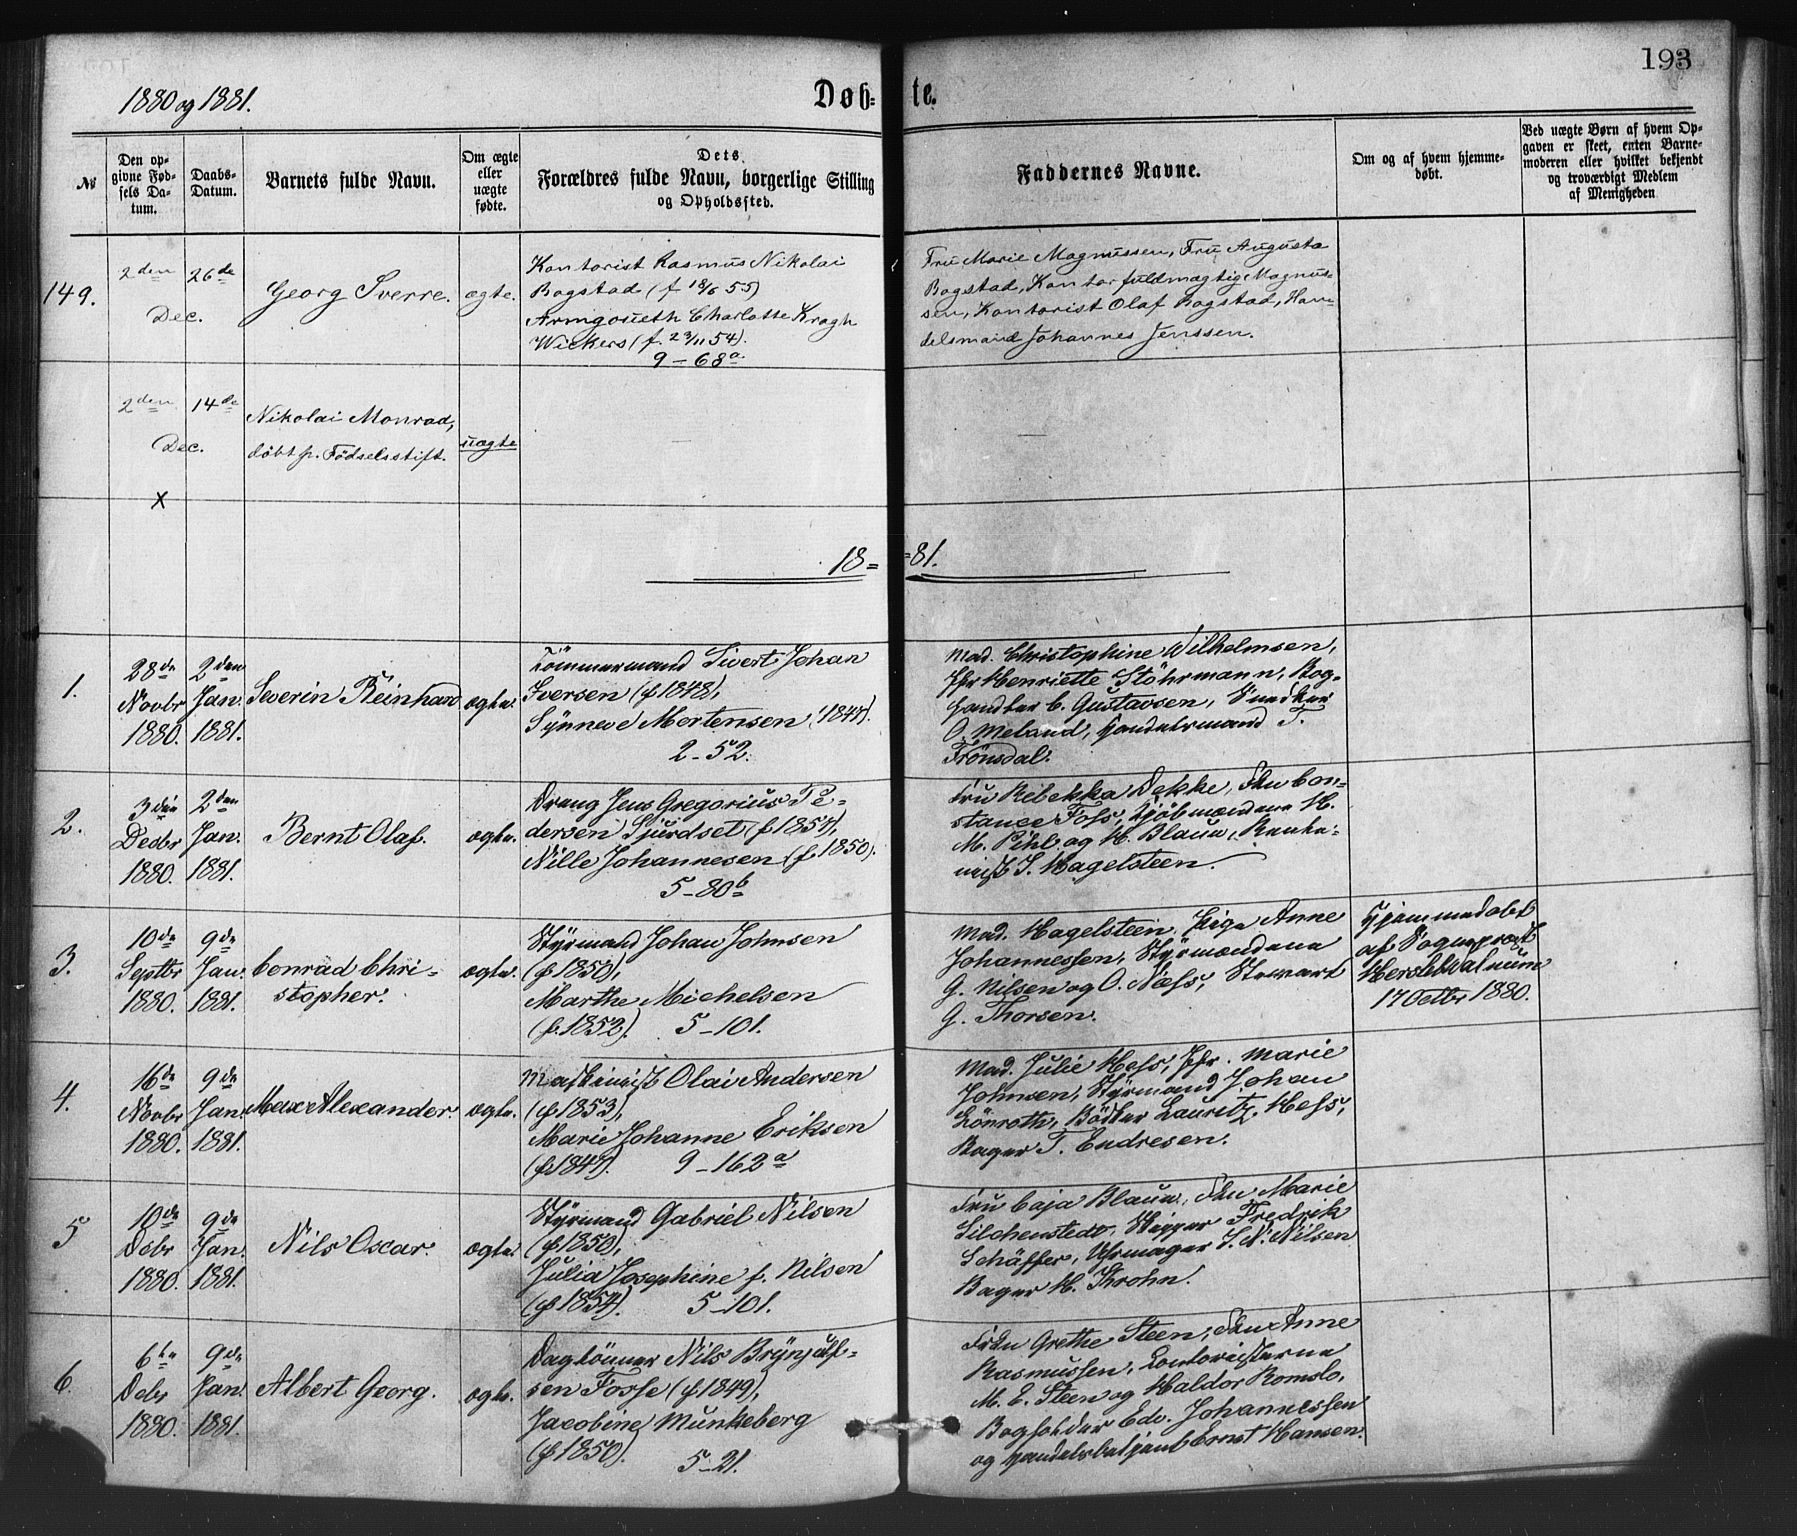 193
1880 og 1881.
Døb- te.
No
Den opgivne Fødsels Datum.
Daabs-Datum.
Barnets fulde Navn.
Om ægte eller uægte fødte.
Dets Forældres fulde Navn, borgerlige Stilling og Opholdssted.
Faddernes Navne.
Om og af hvem hjemmedøbt.
Ved uægte Børn af hvem Opgaven er skeet, enten Barnemoderen eller hvilket bekjendt og troværdigt Medlem af Menigheden
149.
2den Dec.
26de
Georg Sverre.
ægte.
Kontorist Rasmus Nikolai
Bogstad (f 18/6 55)
Armgoueth Charlotte Kragh
Wickers (f. 23/11 54).
9 - 68a
Fru Marie Magnussen, Fru Augusta
Bogstad, Kontorfuldmægtig Magnus-
sen, Kontorist Olaf Bogstad, Han-
delsmand Johannes Jenssen.
2den Dec.
14de
Nikolai Monrad,
døbt p. Fødselsstift.
uægte
x
18= =81.
1.
28de Novbr 1880.
2den Jan. 1881.
Severin Reinhard
ægte.
Tömmermand Sivert Johan
Iversen (f 1848),
Synneve Mertensen (1847).
2-52.
Mad. Christophine Wilhelmsen,
Jfr Henriette Störmann, Bog-
handler C. Gustavsen, Snedker
O. Meland, Handelsmand T.
Frönsdal.
2.
3die Decbr 1880.
2den Jan. 1881.
Bernt Olaf.
ægte.
Dreng Jens Gregorius Pe-
dersen Sjurdset (f 1857),
Nille Johannesen (f. 1850).
5-80b
Fru Rebekka Dekke, Fru Con-
stance Foss, Kjøbmændene H.
M. Pihl og H. Blauw,
J. Hagelsteen
3.
10de Septbr 1880.
9de Jan. 1881.
Conrad Chri-
stopher.
ægte.
Styrmand Johan Johnsen
(f 1850),
Marthe Michelsen
(f. 1852). 5-101.
Mad. Hagelsteen, Pige Anne
Johannessen, Styrmændene
G. Nilsen og O. Næss, Stewart
G. Thorsen.
Hjemmedøbt
af Sogneprest
Hersleb Walnum
17 Octbr 1880.
4.
16de Novbr 1880.
9de Jan. 1881.
Max Alexander.
ægte.
Maskinist Olai Andersen
(f 1853),
Marie Johanne Eriksen
(f. 1847). 9-162a
Mad. Julie Hess, Jfr. Marie
Johnsen, Styrmand Johan
Lönroth, Bödker Lauritz Hess,
Bager T. Endresen.
5
10de Decbr 1880.
9de Jan. 1881.
Nils Oscar.
ægte.
Styrmand Gabriel Nilsen
(f 1850),
Julia Josephine f. Nilsen
(f 1854). 5-101.
Fru Caja Blauw, Fru Marie
Silchenstedt, Skipper Fredrik
Schäffer, Uhrmager S. N. Nilsen
Bager H. Krohn.
6.
6te Decbr 1880.
9de Jan. 1881.
Albert Georg.
ægte.
Daglönner Nils Brynjulf-
sen Fosse (f. 1849),
Jacobine Munkeberg
(f 1850). 5-21.
Frkn Grethe Steen, Fru Anne
Rasmussen, Contoristerne
M. E. Steen og Haldor Romslo,
Bogholder Edv. Johannessen
og Handelsbetjent Ernst Hansen.